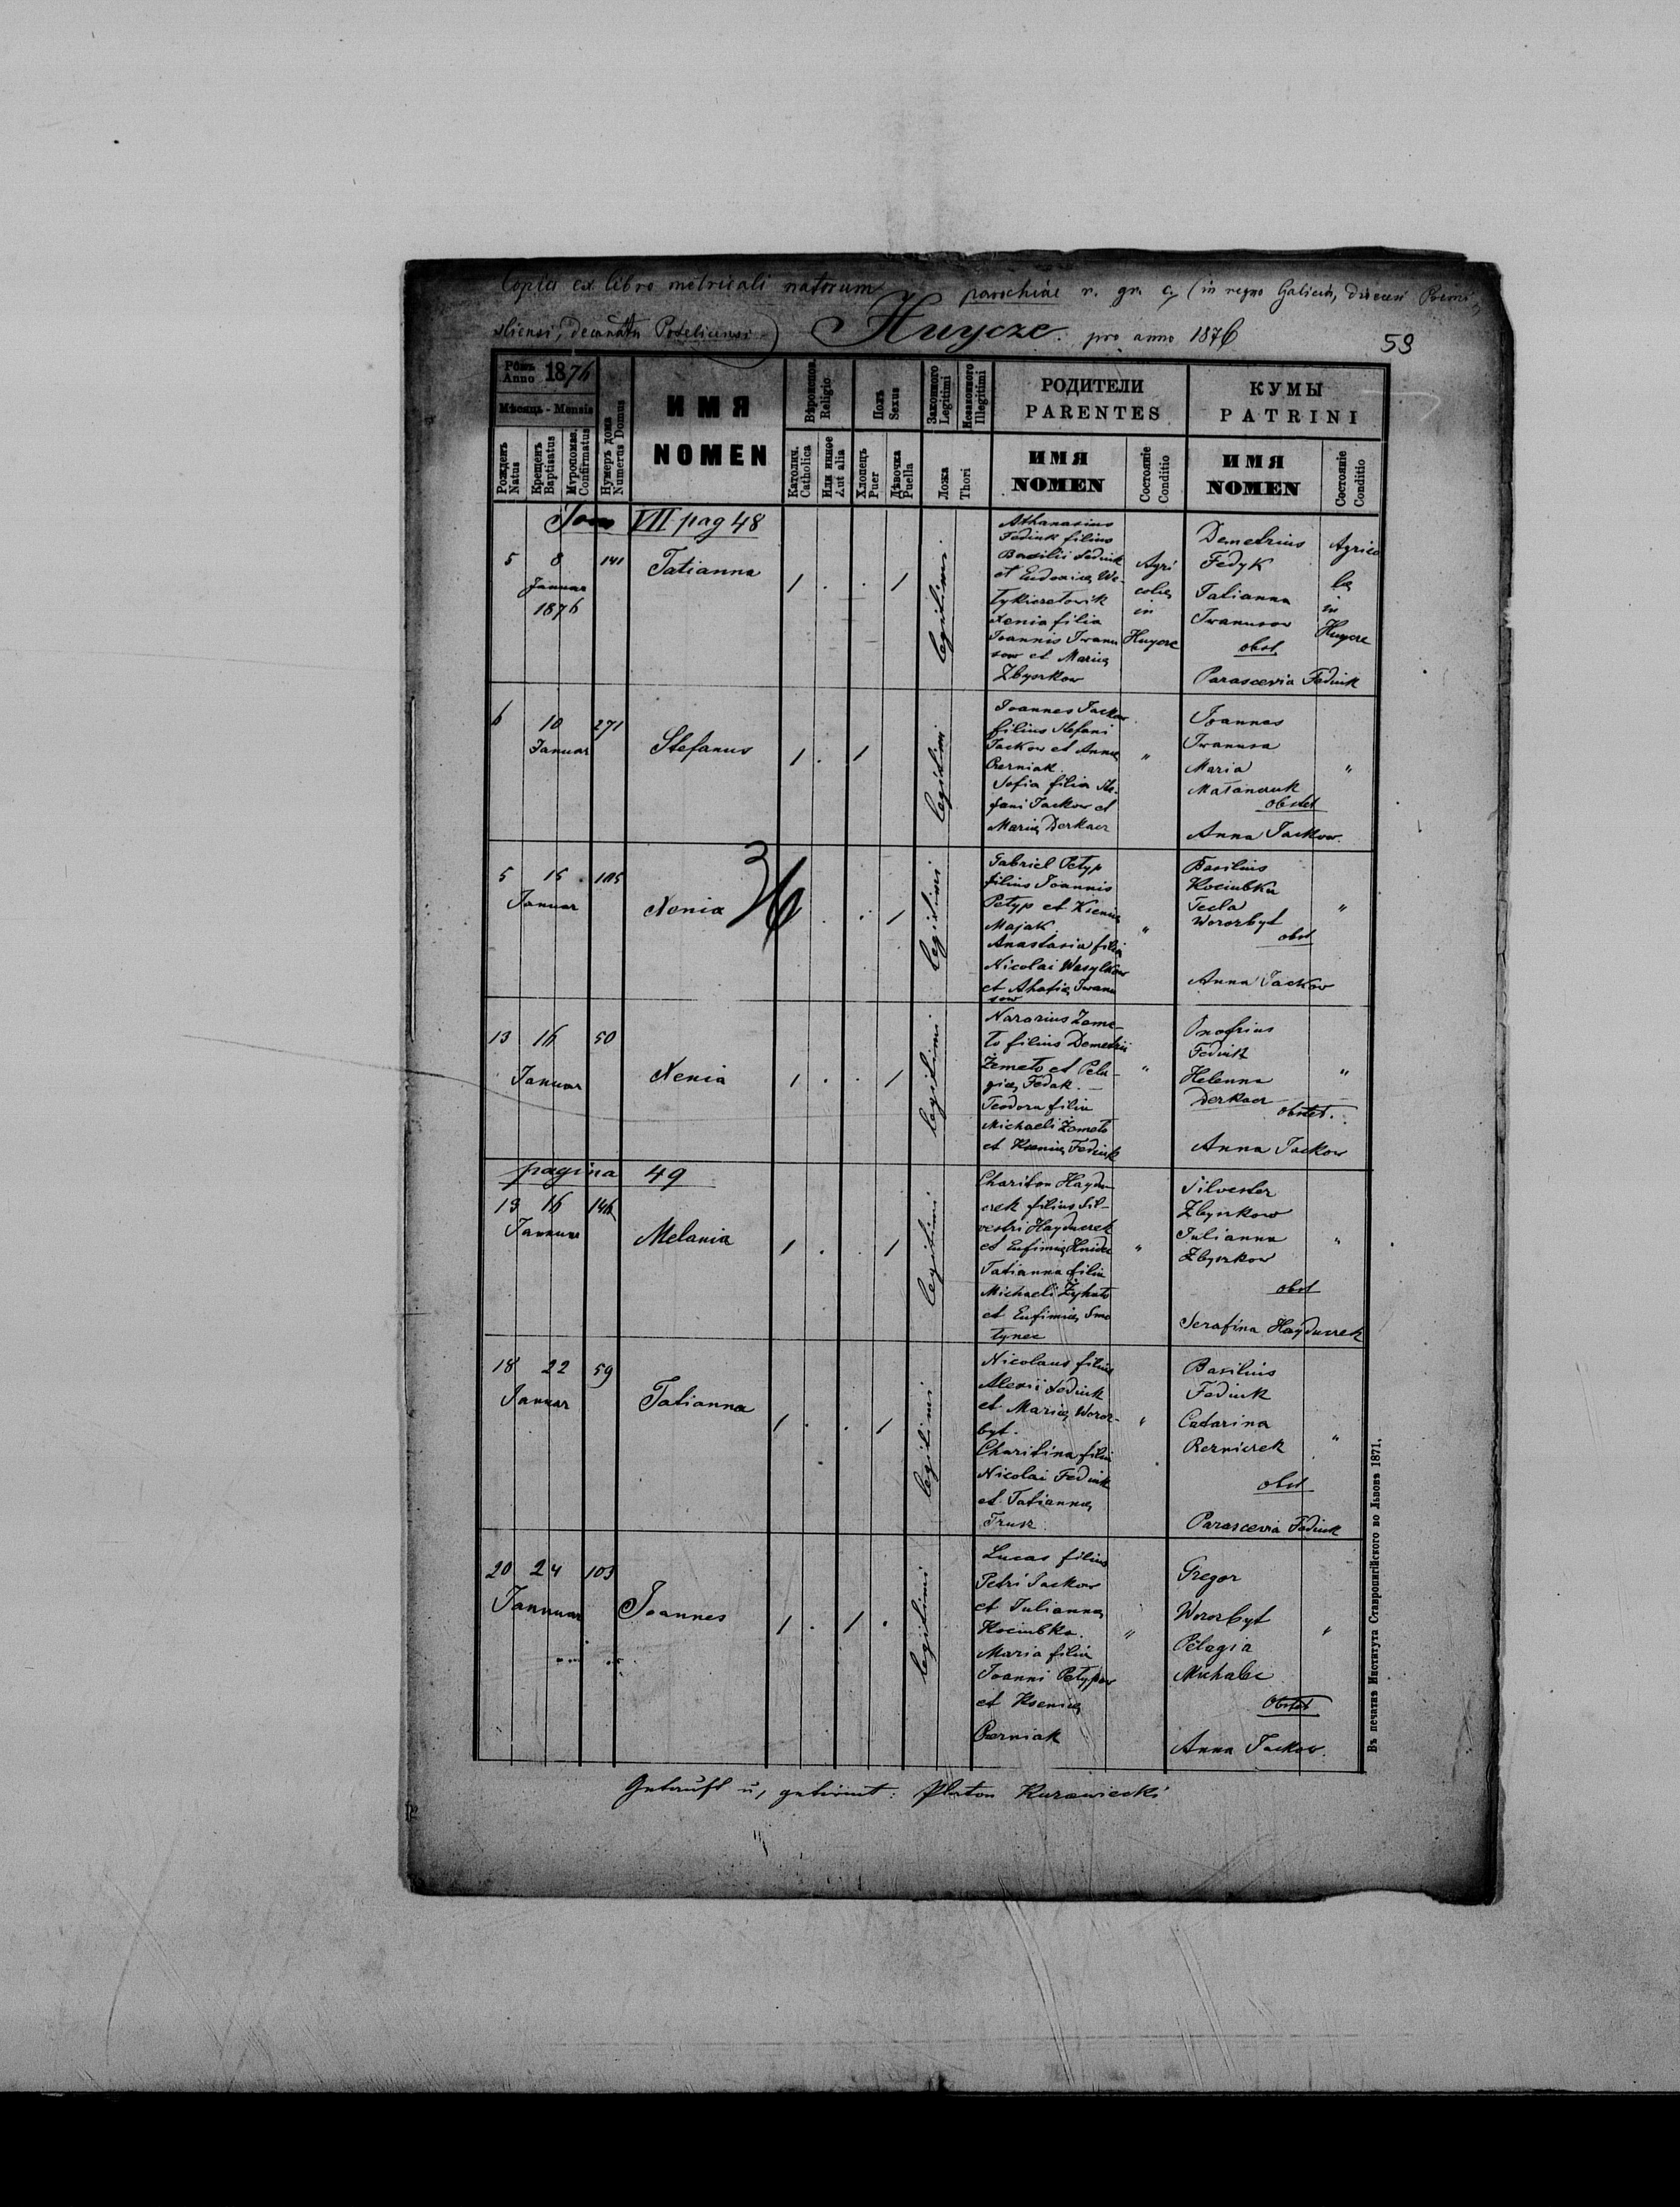 Copia ex libro metricali natorum parochiae r. gr. c. (in regno Galiciae, dioecesi Premi-
sliensi, decanatu Poteliensi) Huycze pro anno 1876
59
Рôкъ Anno 1876
Мѣсяць - Mensis
Рожденъ Natus
Крещенъ Baptisatus
Мѵропомаз. Confirmatus
Нумеръ дома Numerus Domus
ИМЯ
NOMEN
Вѣроиспов. Religio
Католич. Catholica
Или инное Aut alia
Полъ Sexus
Хлопець Puer
Дѣвочка Puella
Законного Legitimi
Незаконного Illegitimi
Ложа Thori
РОДИТЕЛИ
PARENTES
ИМЯ
NOMEN
Состоянiе Conditio
КУМЫ
PATRINI
ИМЯ
NOMEN
Состоянiе Conditio
Tom VII pag 48
5 8 141
Januar
1876
Tatianna
1 . . 1
legitimi
Athanasius
Fediuk filius
Basilii Fediuk
et Eudoxia We-
Xenia filia
Joannis Iwanu
sow et Maria
Zbyszkow
Agri
colae
in
Huycze
Demetrius
Fedyk
Tatianna
Iwanusow
obst
Parascevia Fediuk
Agrico
la
in
Huycze
6 10 271
Januar
Stefanus
1 . 1
legitimi
Joannes Jackow
filius Stefani
Jackow et Anna
Czerniak.
Sofia filia Ste-
fani Jackow et
Maria Derkacz
"
Joannes
Iwanusa
Maria
obstet
Anna Jackow.
"
5 15 105
Januar
Xenia
36
. . 1
legitimi
Gabriel Petyp
filius Joannis
Petyp et Ksenia
Majak
Anastasia filia
Nicolai Wasylkow
et Ahafia Iwanu
sow
"
Basilius
Kociubka
Tecla
Worozbyt
obst
Anna Jackow
"
13 16 50
Januar
Xenia
1 . . 1
legitimi
Nazarius Zeme-
to filius Demetrii
Żemeto et Pela-
gia Fedak. —
Teodora filia
Michaeli Żemeto
et Ksenia Fediuk
"
Onofrius
Fediuk
Helenna
Derkacz
obstet.
Anna Jackow
"
pagina 49
13 16 146
Januar
Melania
1 . . 1
legitimi
Chariton Haydu-
czek filius Sil-
vestri Hayduczek
et Eufimia Hnida
Tatianna filia
Michaeli Żyhato
et Eufimia Smo
tynec
"
Silvester
Zbyszkow
Julianna
Zbyszkow
obst
Serafina Hayduczek
"
18 22 59
Januar
Tatianna
1 . . 1
legitimi
Nicolaus filius
Alexii Fediuk
et Maria Woroz-
byt.
Charitina filia
Nicolai Fediuk
et Tatianna
Trusz
"
Basilius
Fediuk
Catarina
Rezniczek
obst
Parascevia Fediuk
"
20 24 103
Januar
Joannes
1 . 1 .
legitimi
Lucas filius
Petri Jackow
et Julianna
Kociubka.
Maria filia
Joanni Petypow
et Ksenia
Czerniak
"
Gregor
Worozbyt
Pelagia
Michalec
Obstet
Anna Jackow.
"
Въ печатнѣ Института Ставропигiйского во Львовѣ 1871.
Getauft u, gefirmt: Platon Kurawiecki